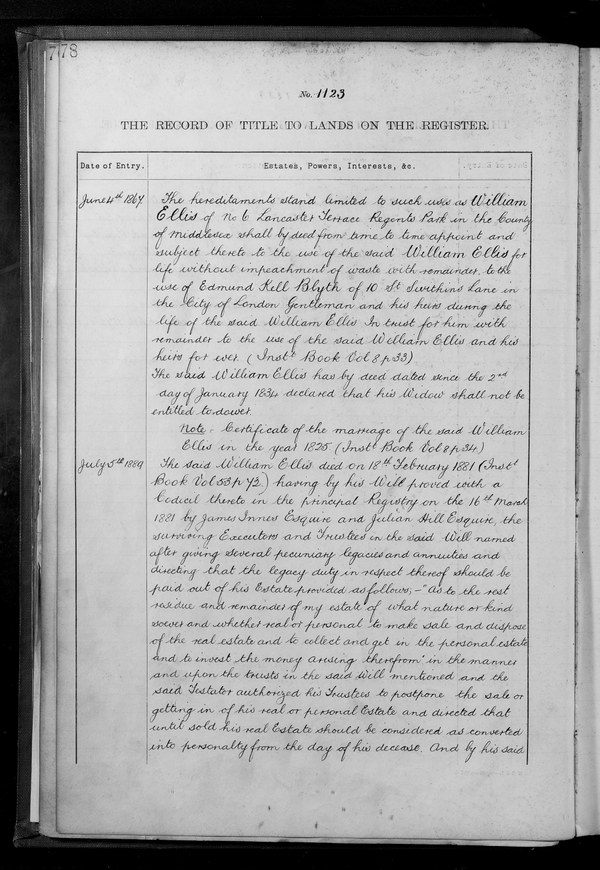 778
No. 1123
THE RECORD OF TITLE TO LANDS ON THE REGISTER.
Date of Entry.
Estates, Powers, Interests, &c.
June 4th 1867
The hereditaments stand limited to such uses as William
Ellis of No 6 Lancaster Terrace Regents Park in the County
of Middlesex shall by deed from time to time appoint and
subject thereto to the use of the said William Ellis for
life without impeachment of waste with remainder to the
use of Edmund Kell Blyth of 10 St Swithins Lane in
the City of London Gentleman and his heirs during the
life of the said William Ellis In trust for him with
remainder to the use of the said William Ellis and his
heirs for ever. (Instt Book Vol 8 p 33)
The said William Ellis has by deed dated since the 2nd
day of January 1834 declared that his Widow shall not be
entitled to dower.
Note: Certificate of the marriage of the said William
Ellis in the year 1825 (Instt Book Vol 8 p 34)
July 5th 1889
The said William Ellis died on 18th February 1881 (Instt
Book Vol 53 p 72.) having by his Will proved with a
Codicil thereto in the principal Registry on the 16th March
1881 by James Innes Esquire and Julian Hill Esquire, the
surviving Executors and Trustees in the said Will named
after giving several pecuniary legacies and annuities and
directing that the legacy duty in respect thereof should be
paid out of his Estate provided as follows;-"As to the rest
residue and remainder of my estate of what nature or kind
soever and whether real or personal to make sale and dispose
of the real estate and to collect and get in the personal estate
and to invest the money arising therefrom" in the manner
and upon the trusts in the said Will mentioned and the
said Testator authorized his Trustees to postpone the sale or
getting in of his real or personal Estate and directed that
until sold his real Estate should be considered as converted
into personalty from the day of his decease. And by his said